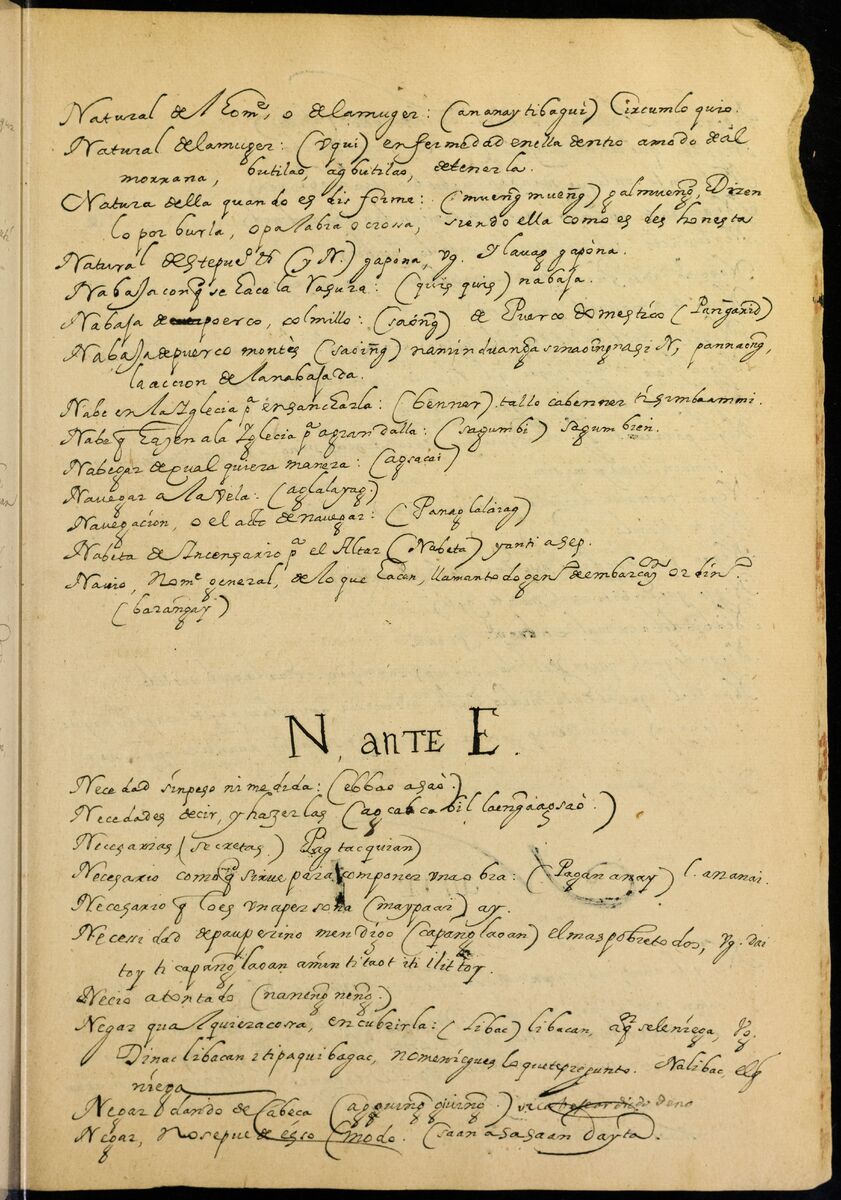 Natural del home, o de la muger: (ananay tibagui) Circumloquio.
Natural de la muger: (vqui) enfermedad en ella dentro a modo de al
morrana, butilao, agbutilao, detenerla.
Natura della quando es disforme: (mueng mueng) galmueng, Dizen
lo por burla, o palabra ociosa, siendo ella como es deshonesta
Natural deste pueo (y N.) gapòna, vg. ylauag gapòna.
Nabaja conq se hace la Vasura: (quis quis) nabaja.
Nabaja de poerco, colmillo: (saóng) de Puerco domestico (Pangarid)
Nabaja de puerco montès (saòing) naminduanga sinaoingnasi N, pannaong,
la accion de la nabajada.
Nabe en la Iglecia pa ensancharla: (benner) tallo cabenner ti simbaammi.
Nabe q hazen a la Iglecia pa agrandalla: (sagumbi) sagumbien.
Nabegar de qual quiera manera: (agsacai)
Navegar a la vela: (aglalayag)
Navegacion, o el acto de navegar: (Panaglalàyag)
Nabeta de Incensario pa el Altar (Nabeta) yanti asep.
Nauio, Nome general, de lo que hacen, llaman todo gen de embarcaçon
(baràngay)
N, ante E.
Necedad sin peso ni medida: (ebbao asaò)
Necedades decir, y hazerlas
Necesarias (secretas) Pagtacquian)
Necesario como q sirue para componer vna obra: (Pagan anay) l. ananai.
Necesario q lo es vna persona (maypaai) ay.
Necessidad de pauperino mendigo (capanglaoan) el mas pobre todos, vg. Dai
toy ti capanglaoan amin ti taot iti ili
Necio atontado (nanengneng)
Negar qual quiera cosa, encubrirla: (Libac) libacan, aq se le niega, Vg.
Dinac libacan iti paquibagac, no me niegues lo que te pregunto. Nalibac, el q
niega
Negar dando de Cabeça (agguingguing)
Negar, No se pue de esso modo. (saan a sasaan Dayta.